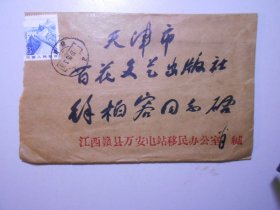 天津市
百花文艺出版社
徐柏容同志启
江西赣县万安电站移民办公室 肖缄